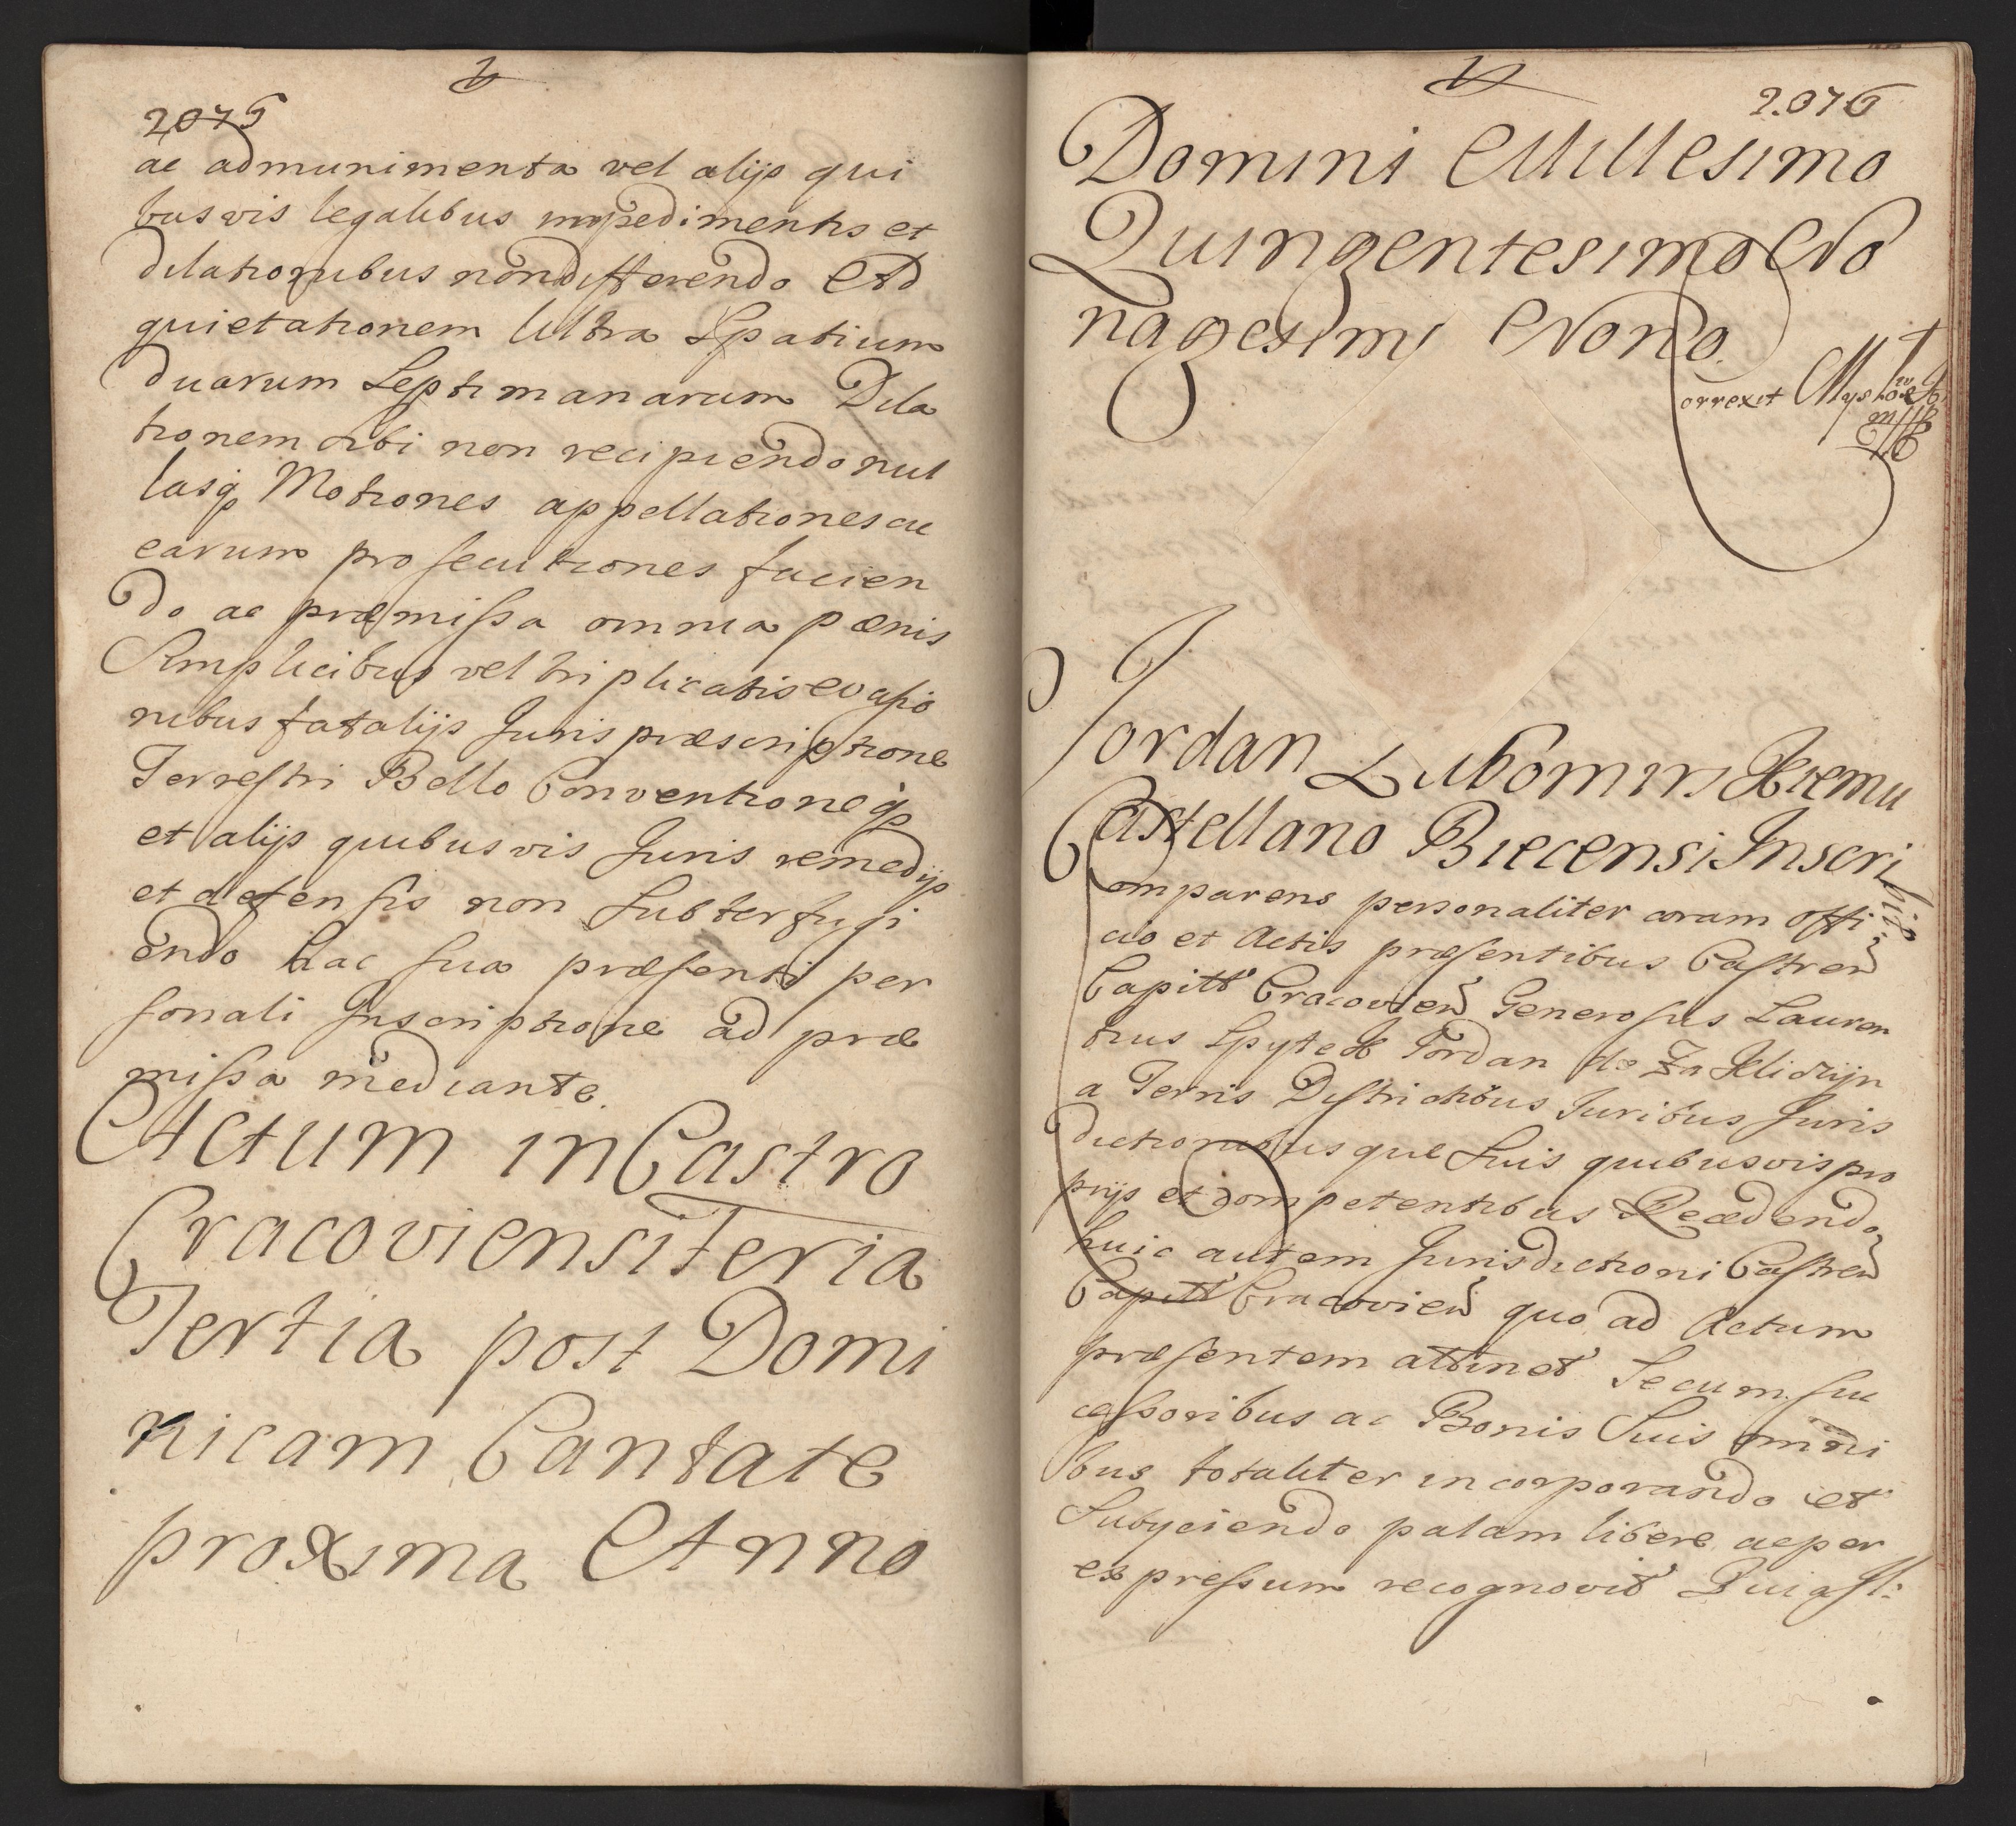 2075
ac admunimenta vel alijs qui
busvis legalibus impedimentis et
dilationibus non differendo Ad
quietationem Ultra Spatium
duarum Septimanarum Dila
tionem sibi non recipiendo nul
lasq Motiones appellationes ac
earum prosecutiones facien
do ac præmissa omnia pœnis
Simplicibus vel triplicatis evasio
nibus fatalijs Juris præscriptione
Terrestri Bello Conventioneq
et alijs quibusvis Juris remedijs
et defensis non Subterfugi
endo hac sua præsenti per
sonali Inscriptione ad præ
missa mediante
Actum in Castro
Cracoviensi Feria
Tertia post Domi
nicam Cantate
proxima Anno
2.076
Domini Millesimo
Quingentesimo No
nagesimo Nono.
Correxit
Jordan Lubomirskiemu
Castellano Biecensi Inscribit
Comparens personaliter coram Offi
cio et Actis præsentibus Castren
Capitt Cracovien Generosus Lauren
tius Spytek Jordan de Zakliczyn
a Terris Districtibus Juribus Juris
dictionibusque Suis quibusvis pro
prijs et competentibus Recedendo
huic autem Jurisdictioni Castren
Capitt Cracovien quo ad Actum
præsentem attinet Secum suc
cessoribus ac Bonis Suis omni
bus totaliter incorporando et
Subijciendo palam libere ac per
expressum recognovit Quia st: